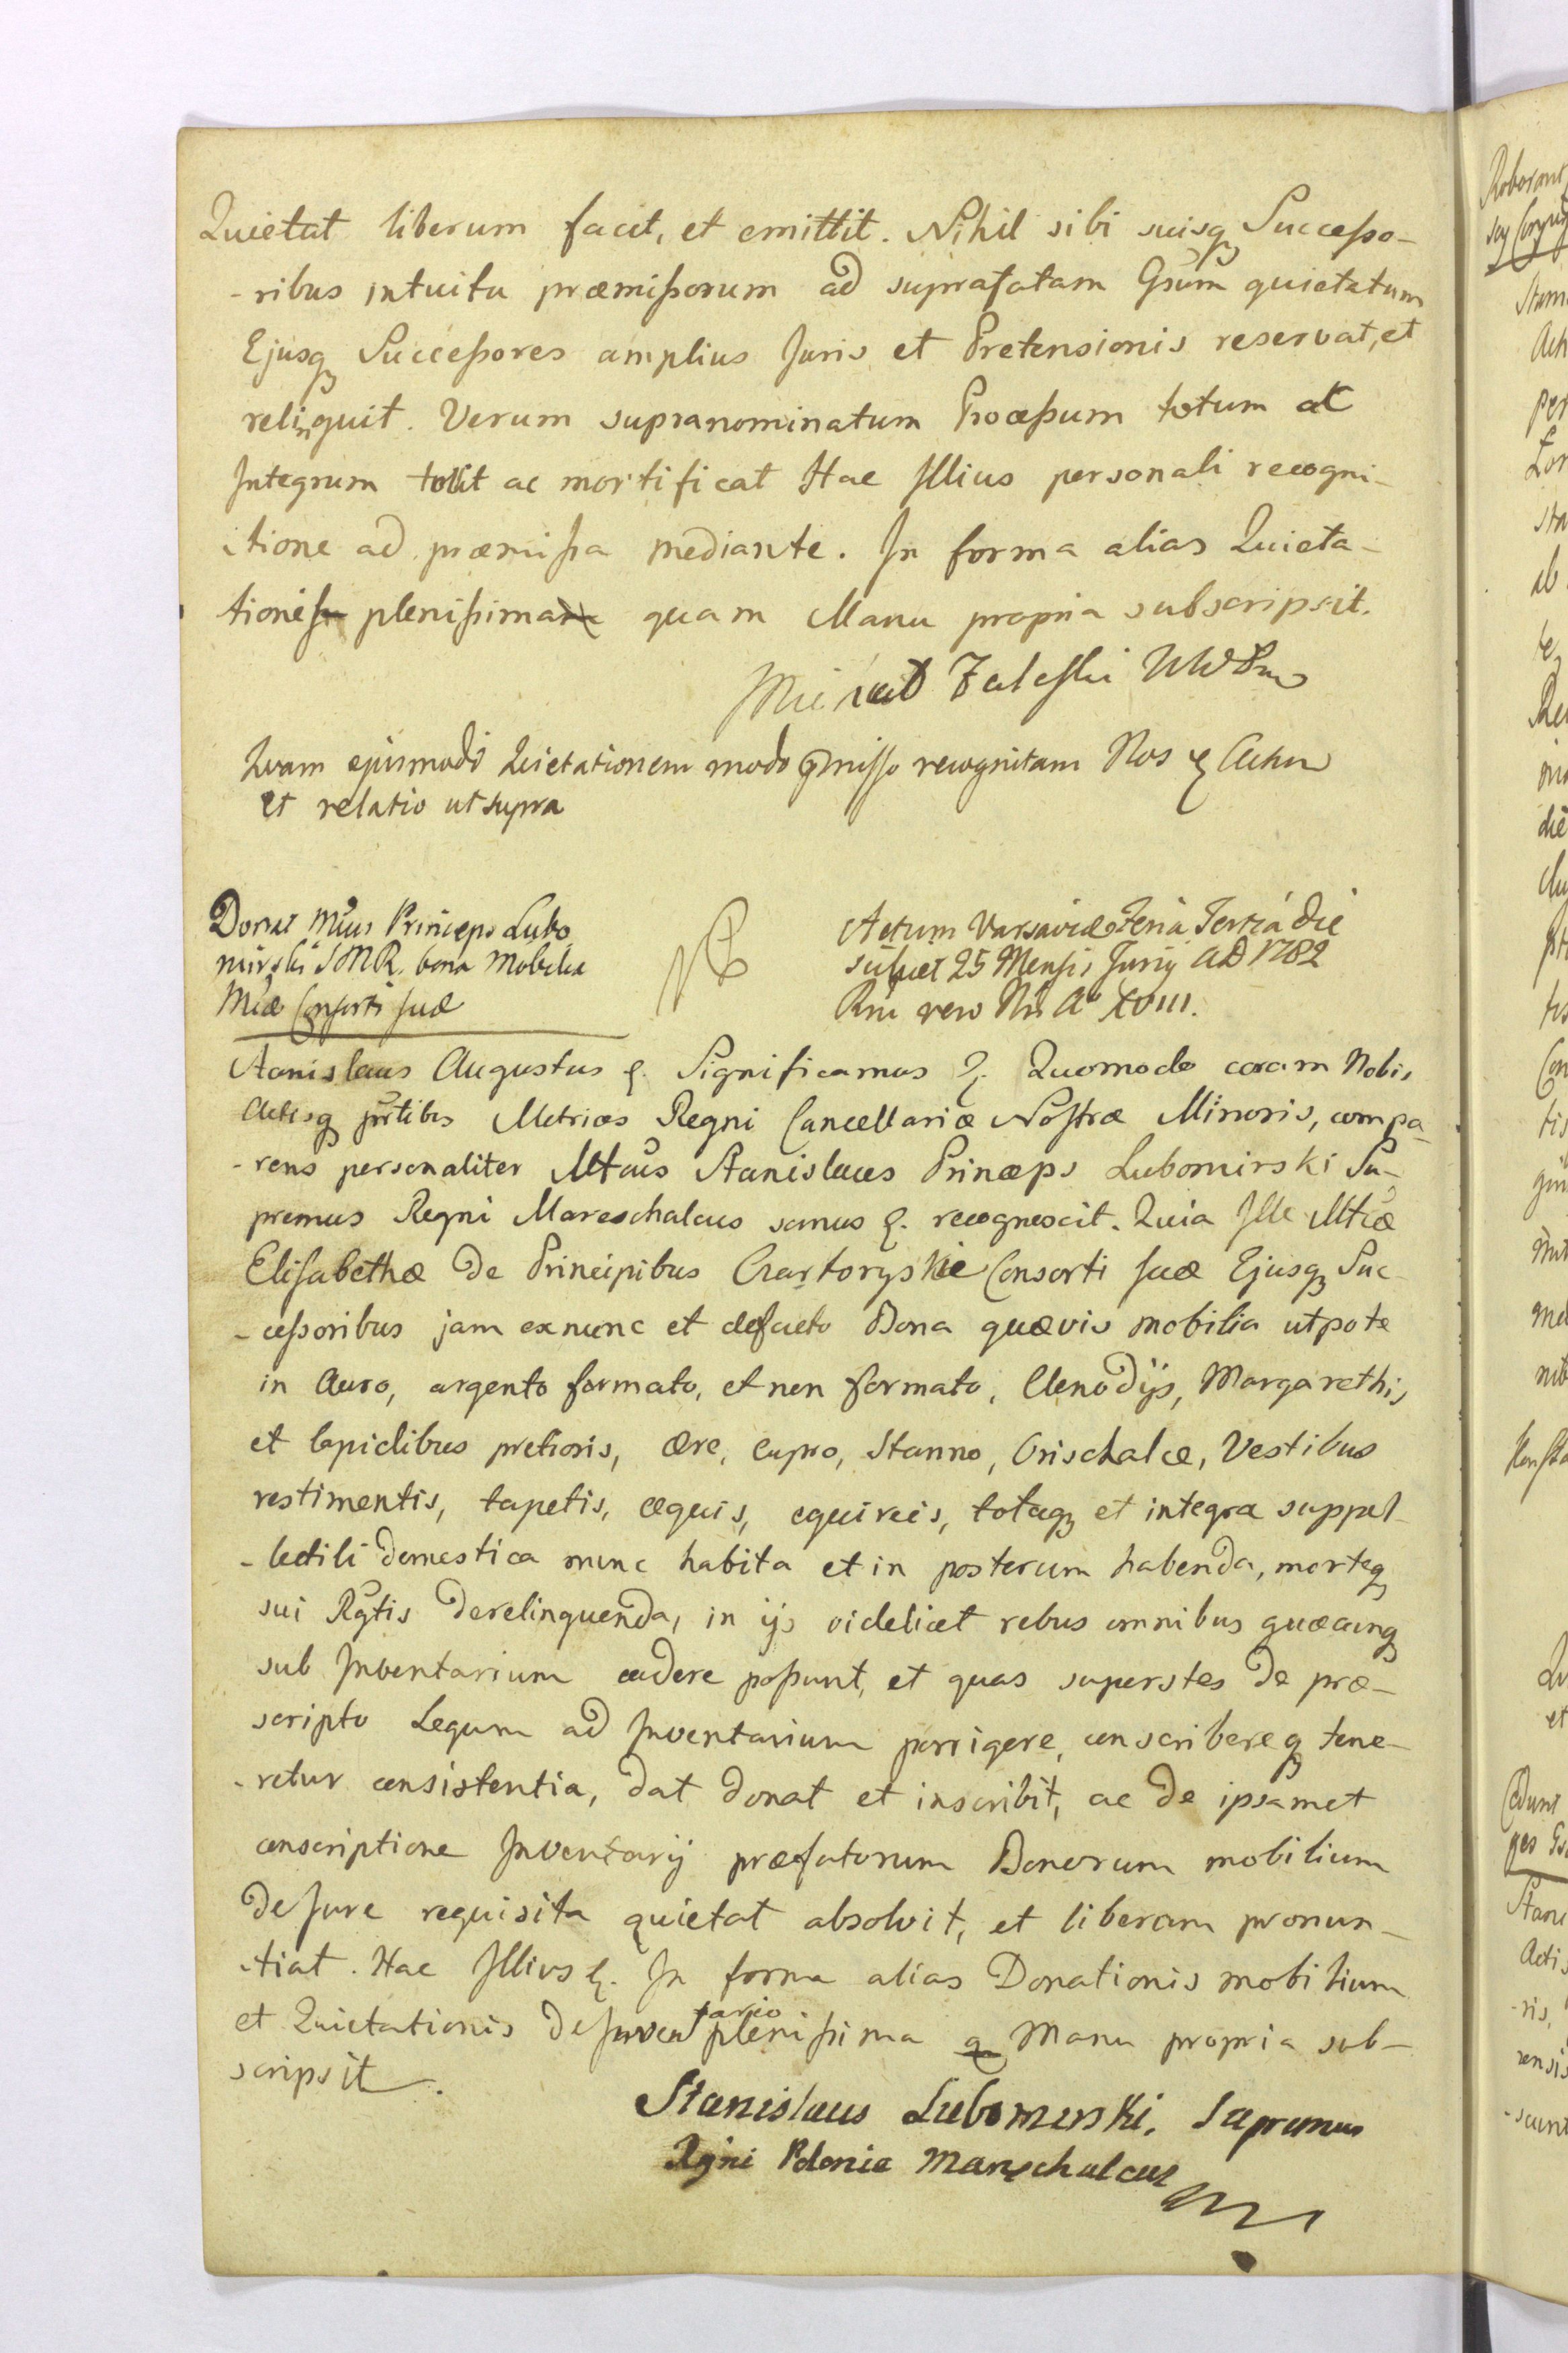 Quietat liberum facit, et emittit. Nihil sibi suisq Successo-
-ribus intuitu præmissorum ad suprafatam Gsum quietatum
Ejusq Successores amplius Juris et Pretensionis reservat, et
relinquit. Verum supranominatum Processum totum at
Integrum tollit ac mortificat Hac Illius personali recogni-
itione ad præmissa mediante. In forma alias Quieta-
tionis plenissima quam Manu propria subscripsit.
Quam ejusmodi Quietationem modo præmisso recognitam Nos
et relatio ut supra
Donat Mtus Princeps Lubo
mirski SMR. bona Mobilia
Mtæ Consorti suæ
NB
Actum Varsaviæ Feria Tertia die
scilicet 25 Mensis Junij AD 1782
Rni vero Nri Ao XVIII.
Stanislaus Augustus &. Significamus &. Quomodo coram Nobis
Actisq pntibus Metrices Regni Cancellariæ Nostræ Minoris, compa-
-rens personaliter Mtcus Stanislaus Princeps Lubomirski Su-
premus Regni Mareschalcus sanus &. recognoscit. Quia Ille Mtcæ
Elisabethæ de Principibus Czartoryskie Consorti suæ Ejusq Suc-
-cessoribus jam exnunc et defacto Bona quævis mobilia utpote
in Auro, argento formato, et non formato, Clenodijs, Margarethis,
et lapidibus pretiosis, Ære, cupro, Stanno, Orischalce, Vestibus
vestimentis, tapetis, æquis, equireis, totaq et integra suppel-
-lectili domestica nunc habita et in posterum habenda, morteq
sui Rgtis derelinquenda, in ijs videlicet rebus omnibus quæcunq
sub Inventarium cadere possunt, et quas superstes de præ-
scripto Legum ad Inventarium porrigere, conscribereq tene-
-retur consistentia, dat donat et inscribit, ac de ipsamet
conscriptione Inventarij præfatorum Bonorum mobilium
de Jure requisita quietat absolvit, et liberam pronun-
-tiat. Hac Illius &. In forma alias Donationis mobilium
et Quietationis de Inventario plenissima q Manu propria sub-
scripsit.
Stanislaus Lubomirski. Supremus
Regni Polonie Mareschalcus